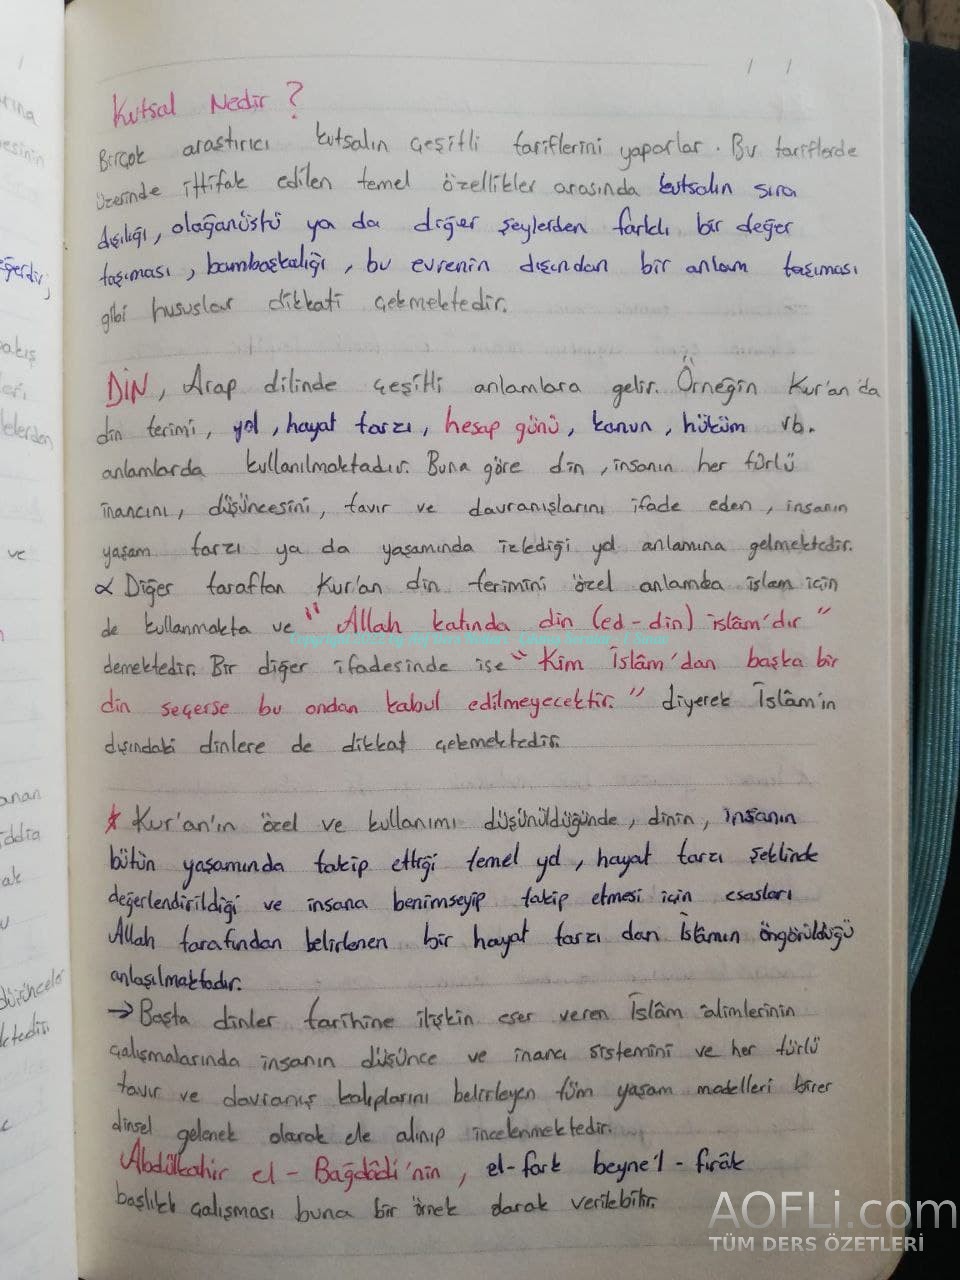 Kutsal Nedir ?
Birçok araştırıcı kutsalın çeşitli tariflerini yaparlar. Bu tariflerde
üzerinde ittifak edilen temel özellikler arasında kutsalın sıra
dışılığı, olağanüstü ya da diğer şeylerden farklı bir değer
taşıması, bambaşkalığı, bu evrenin dışından bir anlam taşıması
gibi hususlar dikkati çekmektedir.
DİN, Arap dilinde çeşitli anlamlara gelir. Örneğin Kur'an'da
din terimi, yol, hayat tarzı, hesap günü, kanun, hüküm vb.
anlamlarda kullanılmaktadır. Buna göre din, insanın her türlü
inancını, düşüncesini, tavır ve davranışlarını ifade eden, insanın
yaşam tarzı ya da yaşamında izlediği yol anlamına gelmektedir.
∝ Diğer taraftan Kur'an din terimini özel anlamda islam için
de kullanmakta ve " Allah katında din (ed-din) islâm'dır "
demektedir. Bir diğer ifadesinde ise " Kim İslâm'dan başka bir
din seçerse bu ondan kabul edilmeyecektir." diyerek İslâm'ın
dışındaki dinlere de dikkat çekmektedir.
* Kur'an'ın özel ve kullanımı düşünüldüğünde, dinin, insanın
bütün yaşamında takip ettiği temel yol, hayat tarzı şeklinde
değerlendirildiği ve insana benimseyip takip etmesi için esasları
Allah tarafından belirlenen bir hayat tarzı dan İslâmın öngörüldüğü
anlaşılmaktadır.
→ Başta dinler tarihine ilişkin eser veren İslâm alimlerinin
çalışmalarında insanın düşünce ve inanç sistemini ve her türlü
tavır ve davranış kalıplarını belirleyen tüm yaşam modelleri birer
dinsel gelenek olarak ele alınıp incelenmektedir.
Abdülkahir el-Bağdâdi'nin, el-fark beyne'l-fırâk
başlıklı çalışması buna bir örnek olarak verilebilir.
AOFLi.com
TÜM DERS ÖZETLERİ